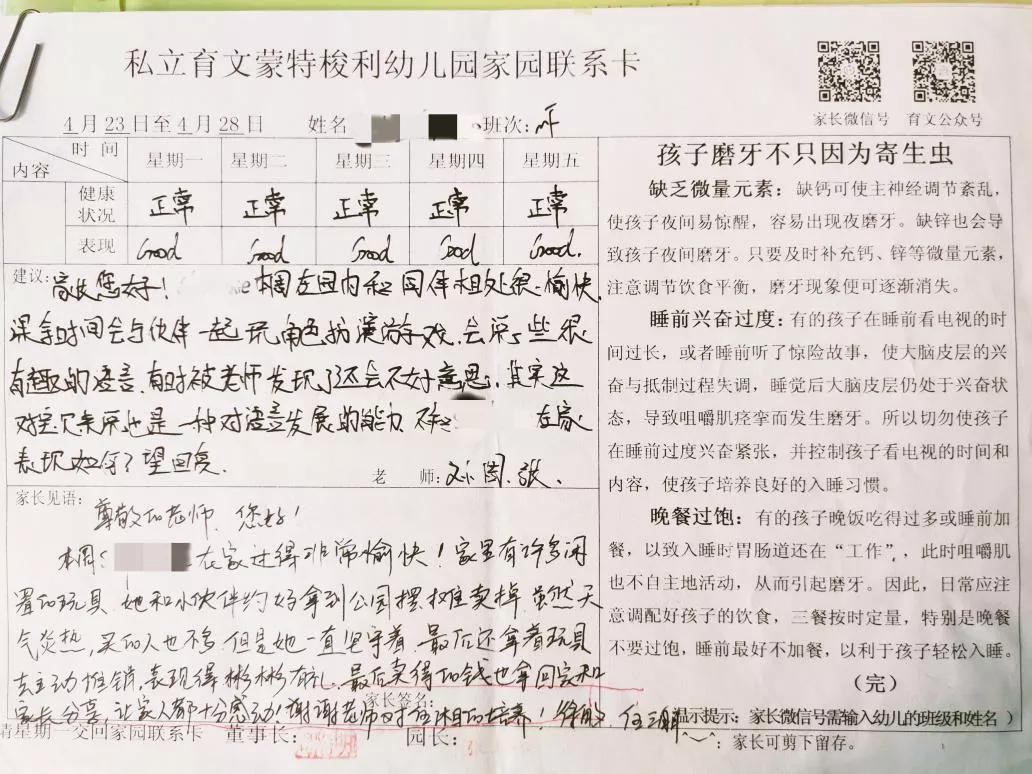 私立育文蒙特梭利幼儿园家园联系卡
家长微信号 育文公众号
4月23日至4月28日 姓名 班次:
时间
内容
星期一 星期二 星期三 星期四 星期五
健康状况 正常 正常 正常 正常 正常
表现 Good Good Good Good Good.
建议: 家长您好! 本周在园内和同伴相处很愉快,
课余时间会与伙伴一起玩角色扮演游戏,会说一些很
有趣的语言,有时被老师发现了还会不好意思,其实这
对宝贝来说也是一种对语言发展的能力, 在家
表现如何?望回复.
老师: 孙 周 张.
家长见语:
尊敬的老师,您好!
本周: 在家过得非常愉快!家里有许多闲
置的玩具,她和小伙伴约好拿到公园摆摊卖掉,虽然天
气炎热,买的人也不多,但是她一直坚守着,最后还拿着玩具
去主动推销,表现得彬彬有礼,最后卖得的钱也拿回家和
家长签名:
家长分享,让家人都十分感动!谢谢老师对 的培养!
请星期一交回家园联系卡 董事长: 园长:
孩子磨牙不只因为寄生虫
缺乏微量元素:缺钙可使主神经调节紊乱,
使孩子夜间易惊醒,容易出现夜磨牙。缺锌也会导
致孩子夜间磨牙。只要及时补充钙、锌等微量元素,
注意调节饮食平衡,磨牙现象便可逐渐消失。
睡前兴奋过度:有的孩子在睡前看电视的时
间过长,或者睡前听了惊险故事,使大脑皮层的兴
奋与抵制过程失调,睡觉后大脑皮层仍处于兴奋状
态,导致咀嚼肌痉挛而发生磨牙。所以切勿使孩子
在睡前过度兴奋紧张,并控制孩子看电视的时间和
内容,使孩子培养良好的入睡习惯。
晚餐过饱:有的孩子晚饭吃得过多或睡前加
餐,以致入睡时胃肠道还在“工作”,此时咀嚼肌
也不自主地活动,从而引起磨牙。因此,日常应注
意调配好孩子的饮食,三餐按时定量,特别是晚餐
不要过饱,睡前最好不加餐,以利于孩子轻松入睡。
(完)
温示提示:家长微信号需输入幼儿的班级和姓名)
:家长可剪下留存。